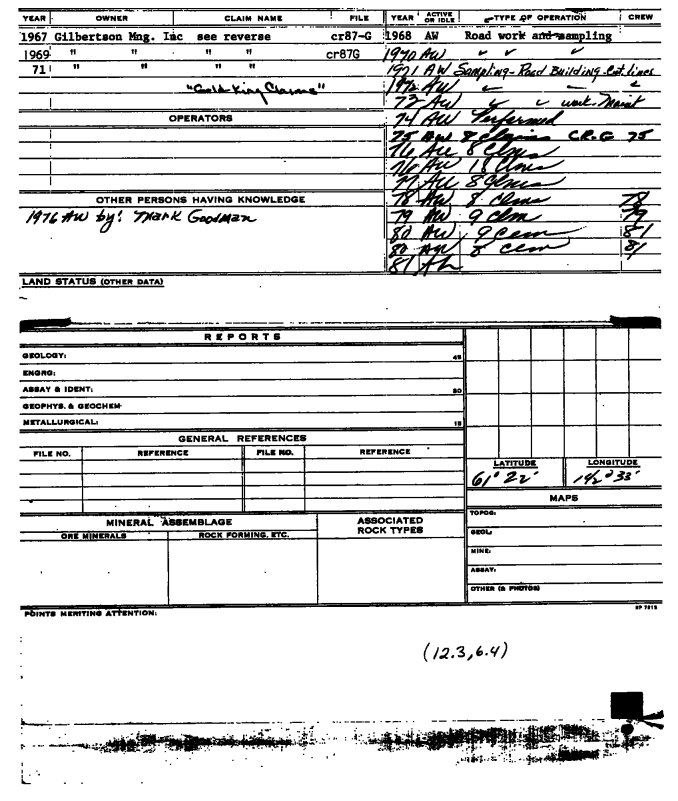 YEAR OWNER CLAIM NAME FILE YEAR ACTIVE OR IDLE TYPE OF OPERATION CREW
1967 Gilbertson Mng. Inc see reverse cr87-G 1968 AW Road work and sampling
1969 " " " " cr87G 1970 AW ✓ ✓ ✓
71 " " " " 1971 AW Sampling-Road Building-Cat. lines
"Gold King Claims" 1972 AW
73 AW work.
OPERATORS 74 AW Performed
75 AW 8 Claims CR.G 75
76 AW 8 Clms
76 AW 18 Clms
77 AW 8 Clms
OTHER PERSONS HAVING KNOWLEDGE 78 AW 8 Clms 78
1976 AW by: Mark Goodman 79 AW 9 clm 79
80 AW 9 clm 81
80 AW 8 clm 81
81
LAND STATUS (OTHER DATA)
REPORTS
GEOLOGY: 45
ENGRG:
ASSAY & IDENT: 30
GEOPHYS. & GEOCHEM
METALLURGICAL: 15
GENERAL REFERENCES
FILE NO. REFERENCE FILE NO. REFERENCE
LATITUDE LONGITUDE
61° 22' 142° 33'
MAPS
MINERAL ASSEMBLAGE ASSOCIATED ROCK TYPES
ORE MINERALS ROCK FORMING, ETC.
TOPOG:
GEOL:
MINE:
ASSAY:
OTHER (& PHOTOS)
POINTS MERITING ATTENTION:
(12.3,6.4)